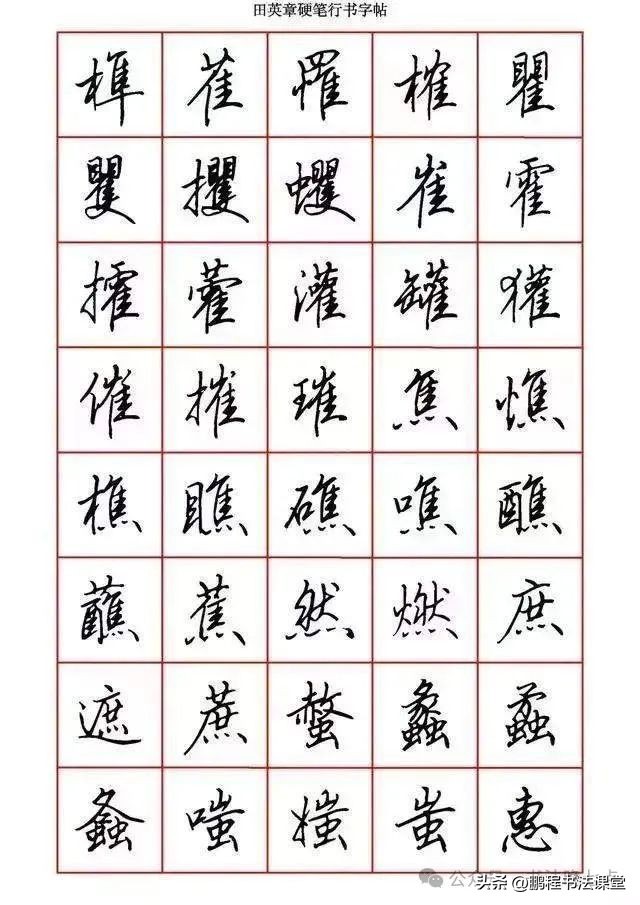 田英章硬笔行书字帖
榫 萑 罹 榷 瞿
矍 攫 蠼 崔 霍
攉 藿 灌 罐 獾
催 摧 璀 焦 憔
樵 瞧 礁 噍 醮
蘸 蕉 然 燃 庶
遮 蔗 螫 蠡
螽 嗤 媸 蚩 惠
公众号
头条 @鹏程书法课堂